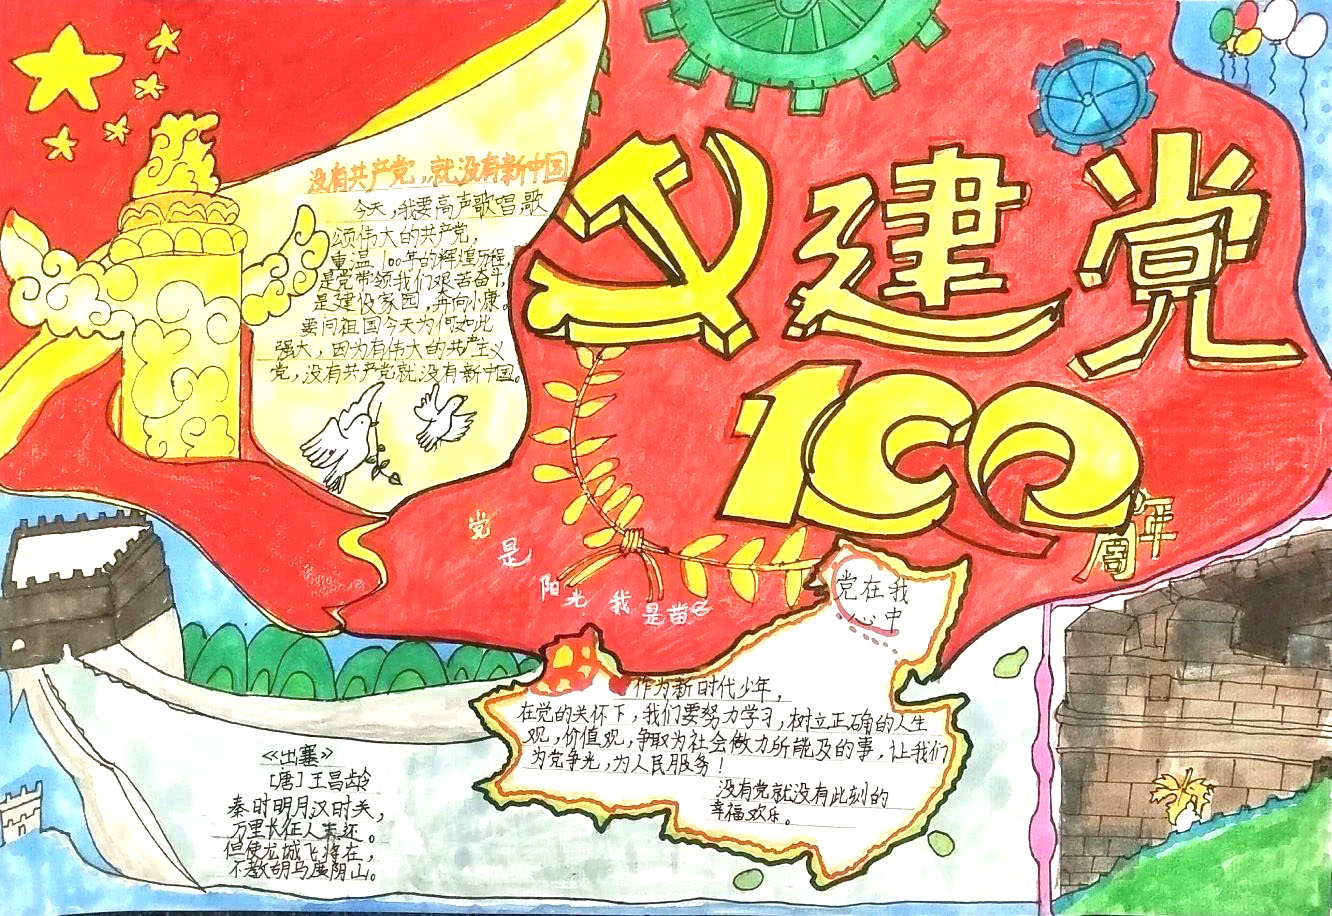 建党
100
周年
没有共产党，就没有新中国
今天，我要高声歌唱，歌
颂伟大的共产党，
重温100年的辉煌历程，
是党带领我们艰苦奋斗，
是建设家园，奔向小康。
要问祖国今天为何如此
强大，因为有伟大的共产主义
党，没有共产党就没有新中国。
党是阳光我是苗子
党在我
心中
作为新时代少年，
在党的关怀下，我们要努力学习，树立正确的人生
观，价值观，争取为社会做力所能及的事，让我们
为党争光，为人民服务！
没有党就没有此刻的
幸福欢乐。
《出塞》
［唐］王昌龄
秦时明月汉时关，
万里长征人未还。
但使龙城飞将在，
不教胡马度阴山。